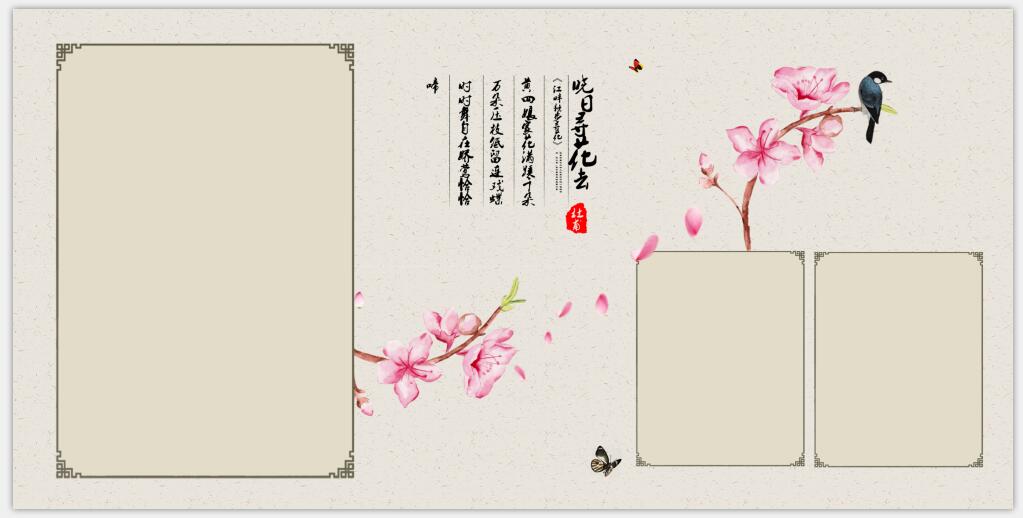 晚日寻花去
《江畔独步寻花》
黄四娘家花满蹊千朵
万朵压枝低留连戏蝶
时时舞自在娇莺恰恰
啼
杜甫